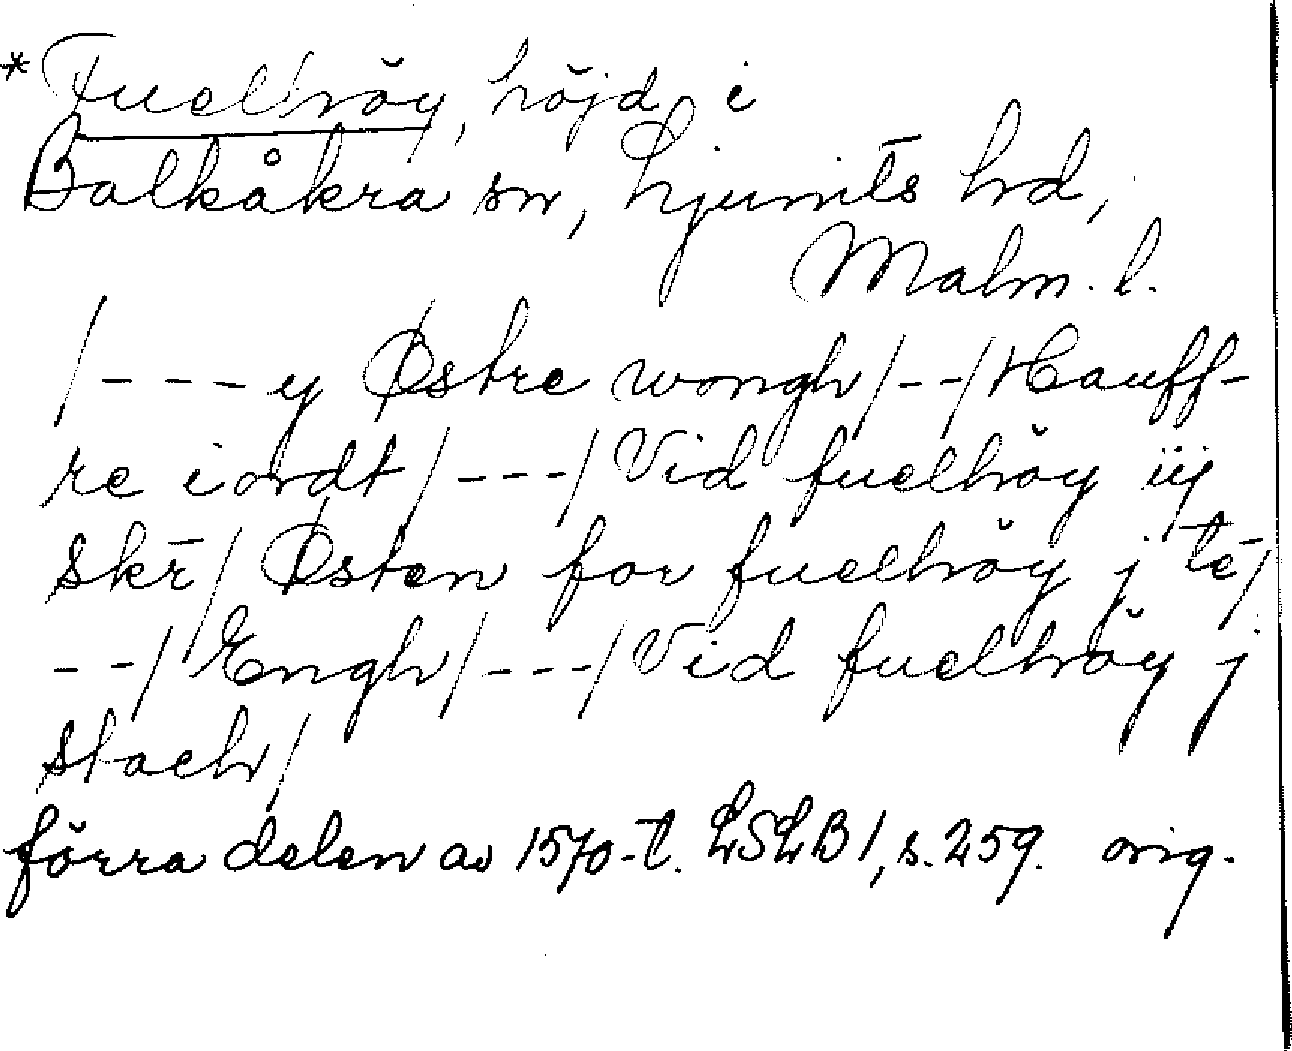 *Fuelhöy, höjd i
Balkåkra sn, Ljunits hd,
Malm. l.
/---y Østre wongh/--/Hauff-
re iordt/---/Vid fuelhöy iij
skr̄/ Østen for fuelhöy j tē/
--/Engh/---/Vid fuelhöy j
stach/
förra delen av 1570-t. LSLB 1, s. 259. orig.